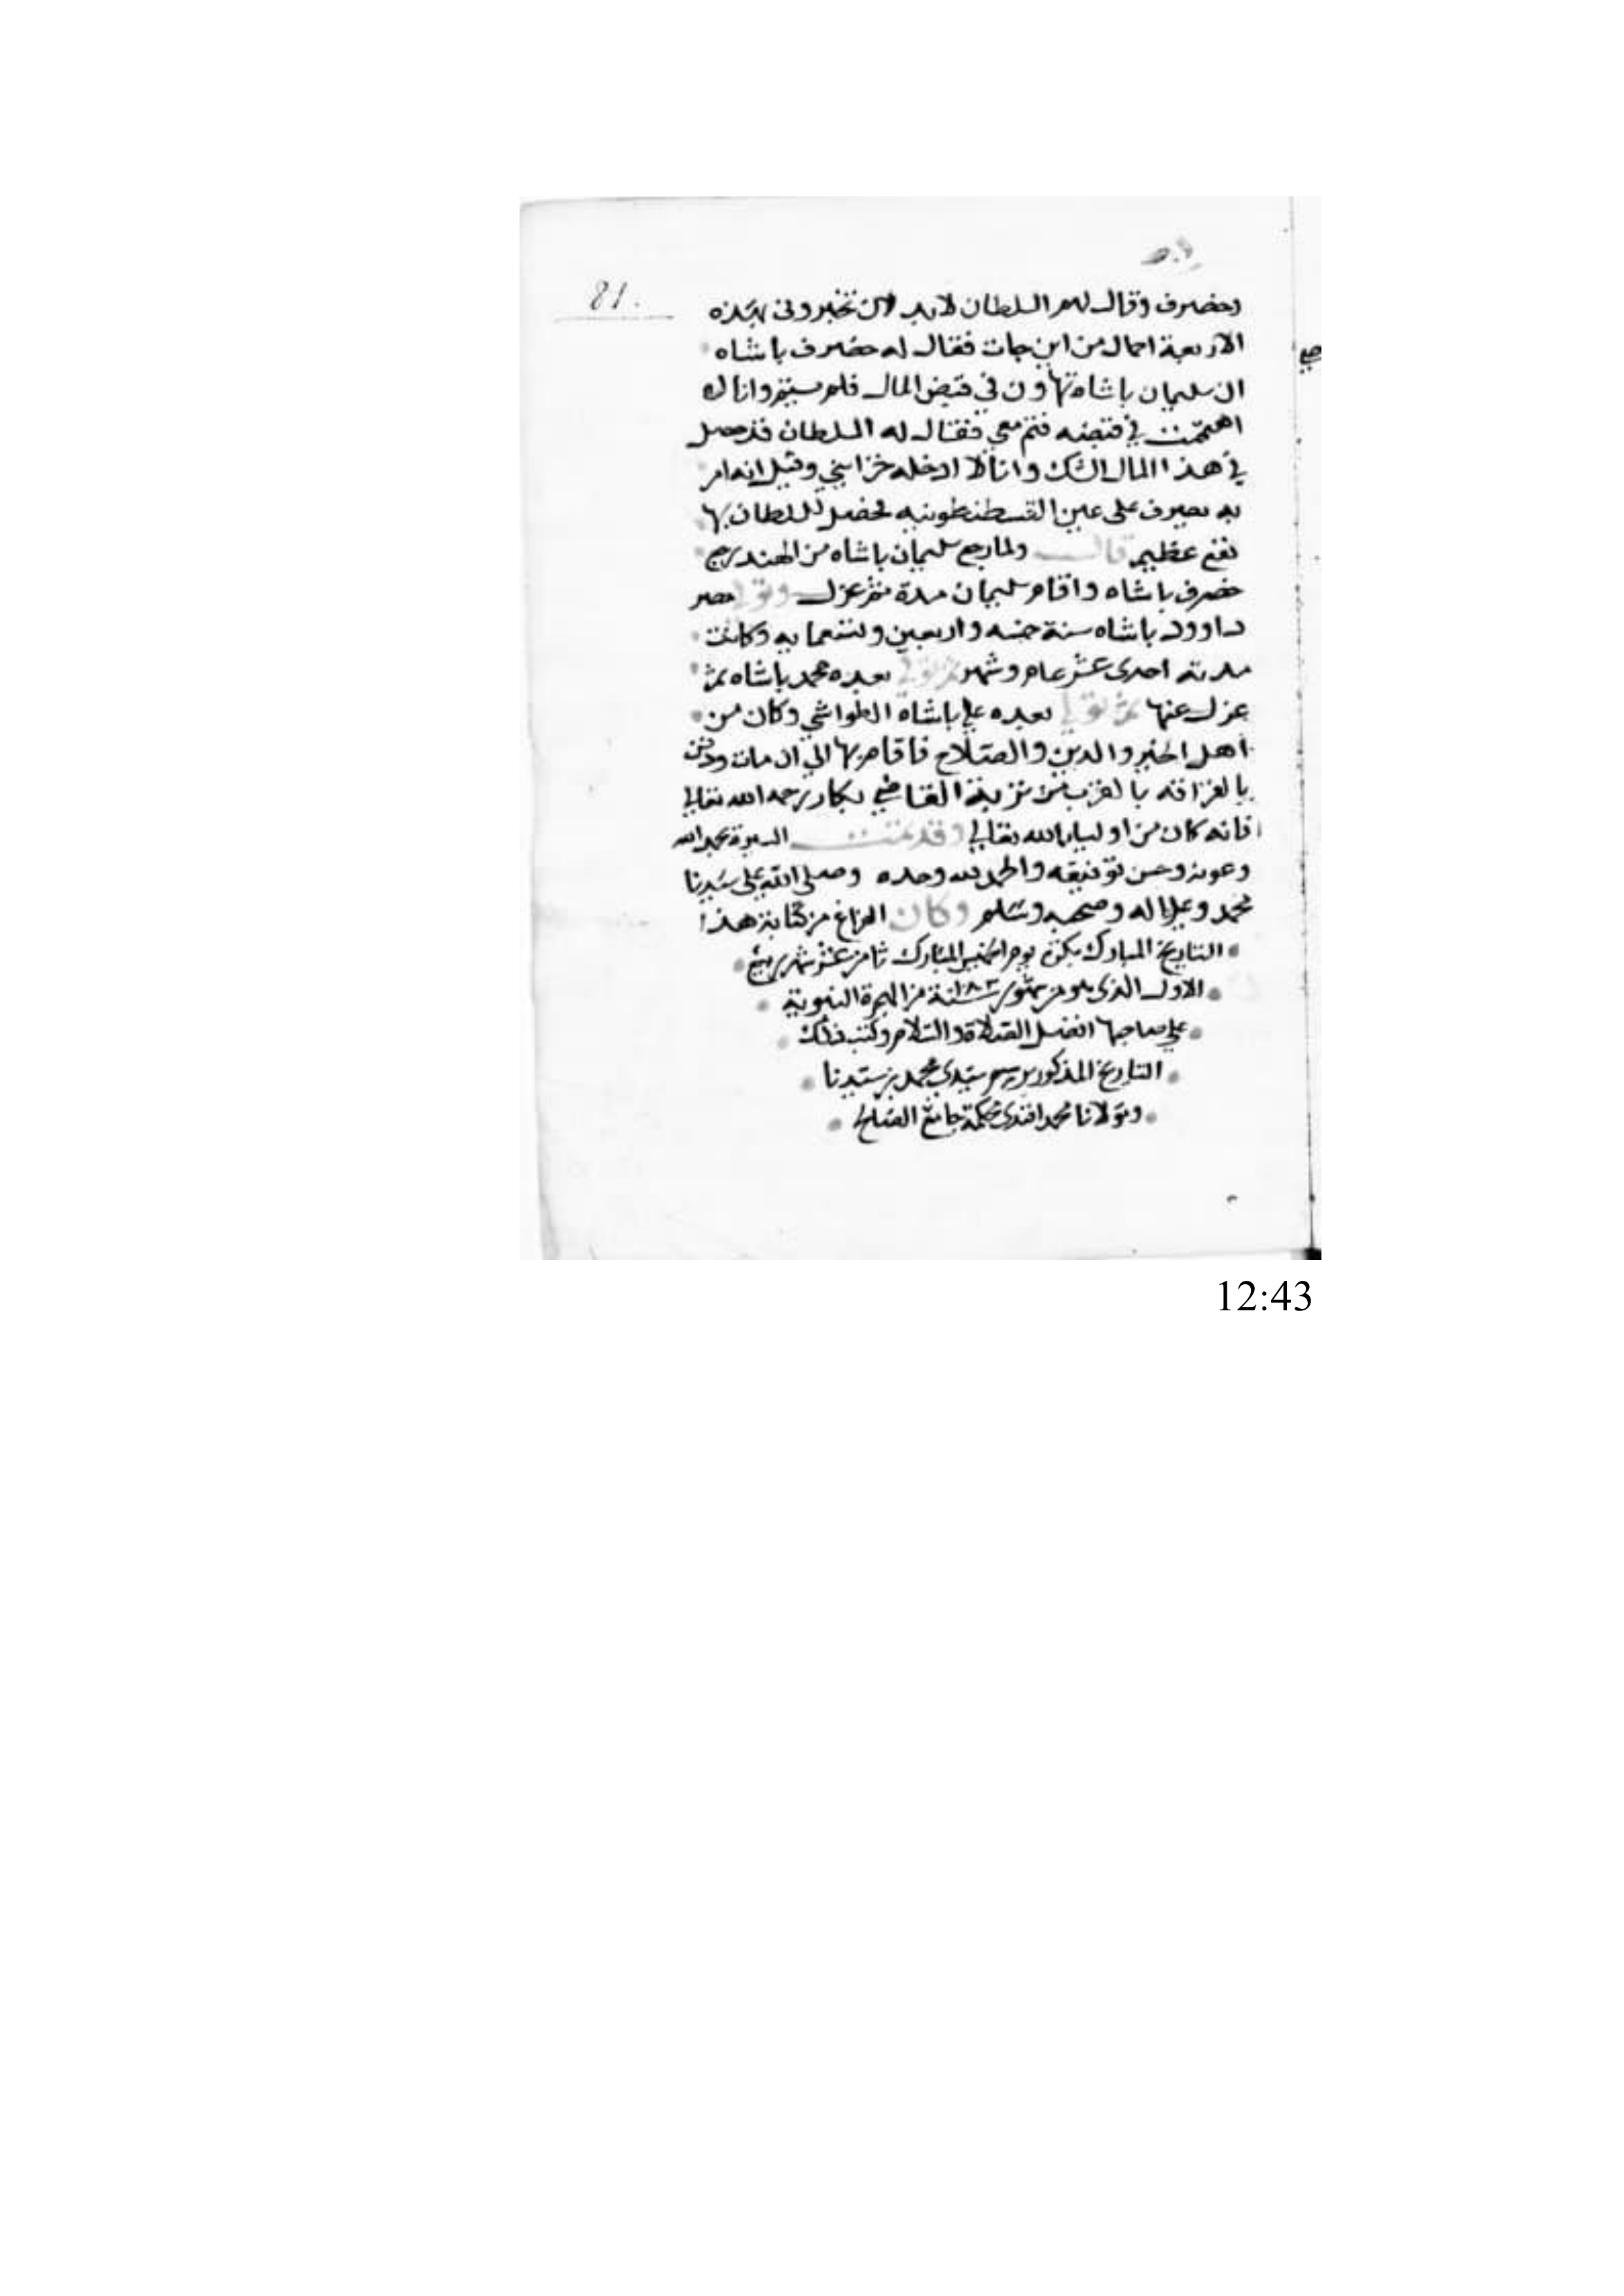 81.
وخضرف وقال لهم السلطان لابد لان تخبروني بهذه
الاربعة احمال من اين جات فقال له خضرف باشاه
ان سليمان باشاه تهاون في قبض المال فلم وانا
اهتميت في قبضه فتم معي فقال له السلطان قد حصل
في هذا المال الشك وانا لا ادخله خزايني وقيل انه امر
به يصرف على عين القسطنطونيه فحصل للسلطان بها
نفع عظيم قال ولما رجع سليمان باشاه من الهند رجع
خضرف باشاه واقام سليمان مدة ثم عزل وتولي مصر
داوود باشاه سنة خمسه واربعين وتسعمايه وكانت
مدته احدى عشر عام وشهر ثم تولي بعده محمد باشاه ثم
عزل عنها ثم تولي بعده علي باشاه الطواشي وكان من
اهل الخير والدين والصلاح فاقام بها الي ان مات ودفن
بالقرافة بالقرب من تربة القاضي بكار رحمه الله تعالي
فانه كان من اوليا الله تعالي وقد تمت السيرة بحمد الله
وعونه وحسن توفيقه والحمد لله وحده وصلى الله على سيدنا
محمد وعلى اله وصحبه وسلم وكان الفراغ من كتابة هذا
التاريخ المبارك بكرة يوم الخميس المبارك ثامن عشر شهر ربيع
الاول الذي هو من شهور سنة ١٠٨٣ من الهجرة النبوية
على صاحبها افضل الصلاة والسلام وكتب ذلك
التاريخ المذكور برسم سيدي محمد بن سيدنا
ومولانا محمد افندي محكمة جامع الصالح
12:43